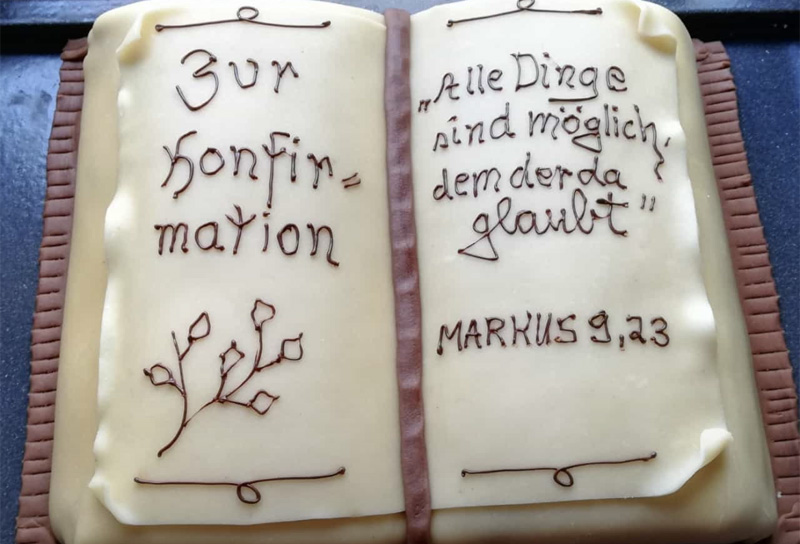 Zur
Konfir=
mation
„Alle Dinge
sind möglich,
dem der da
glaubt"
MARKUS 9,23